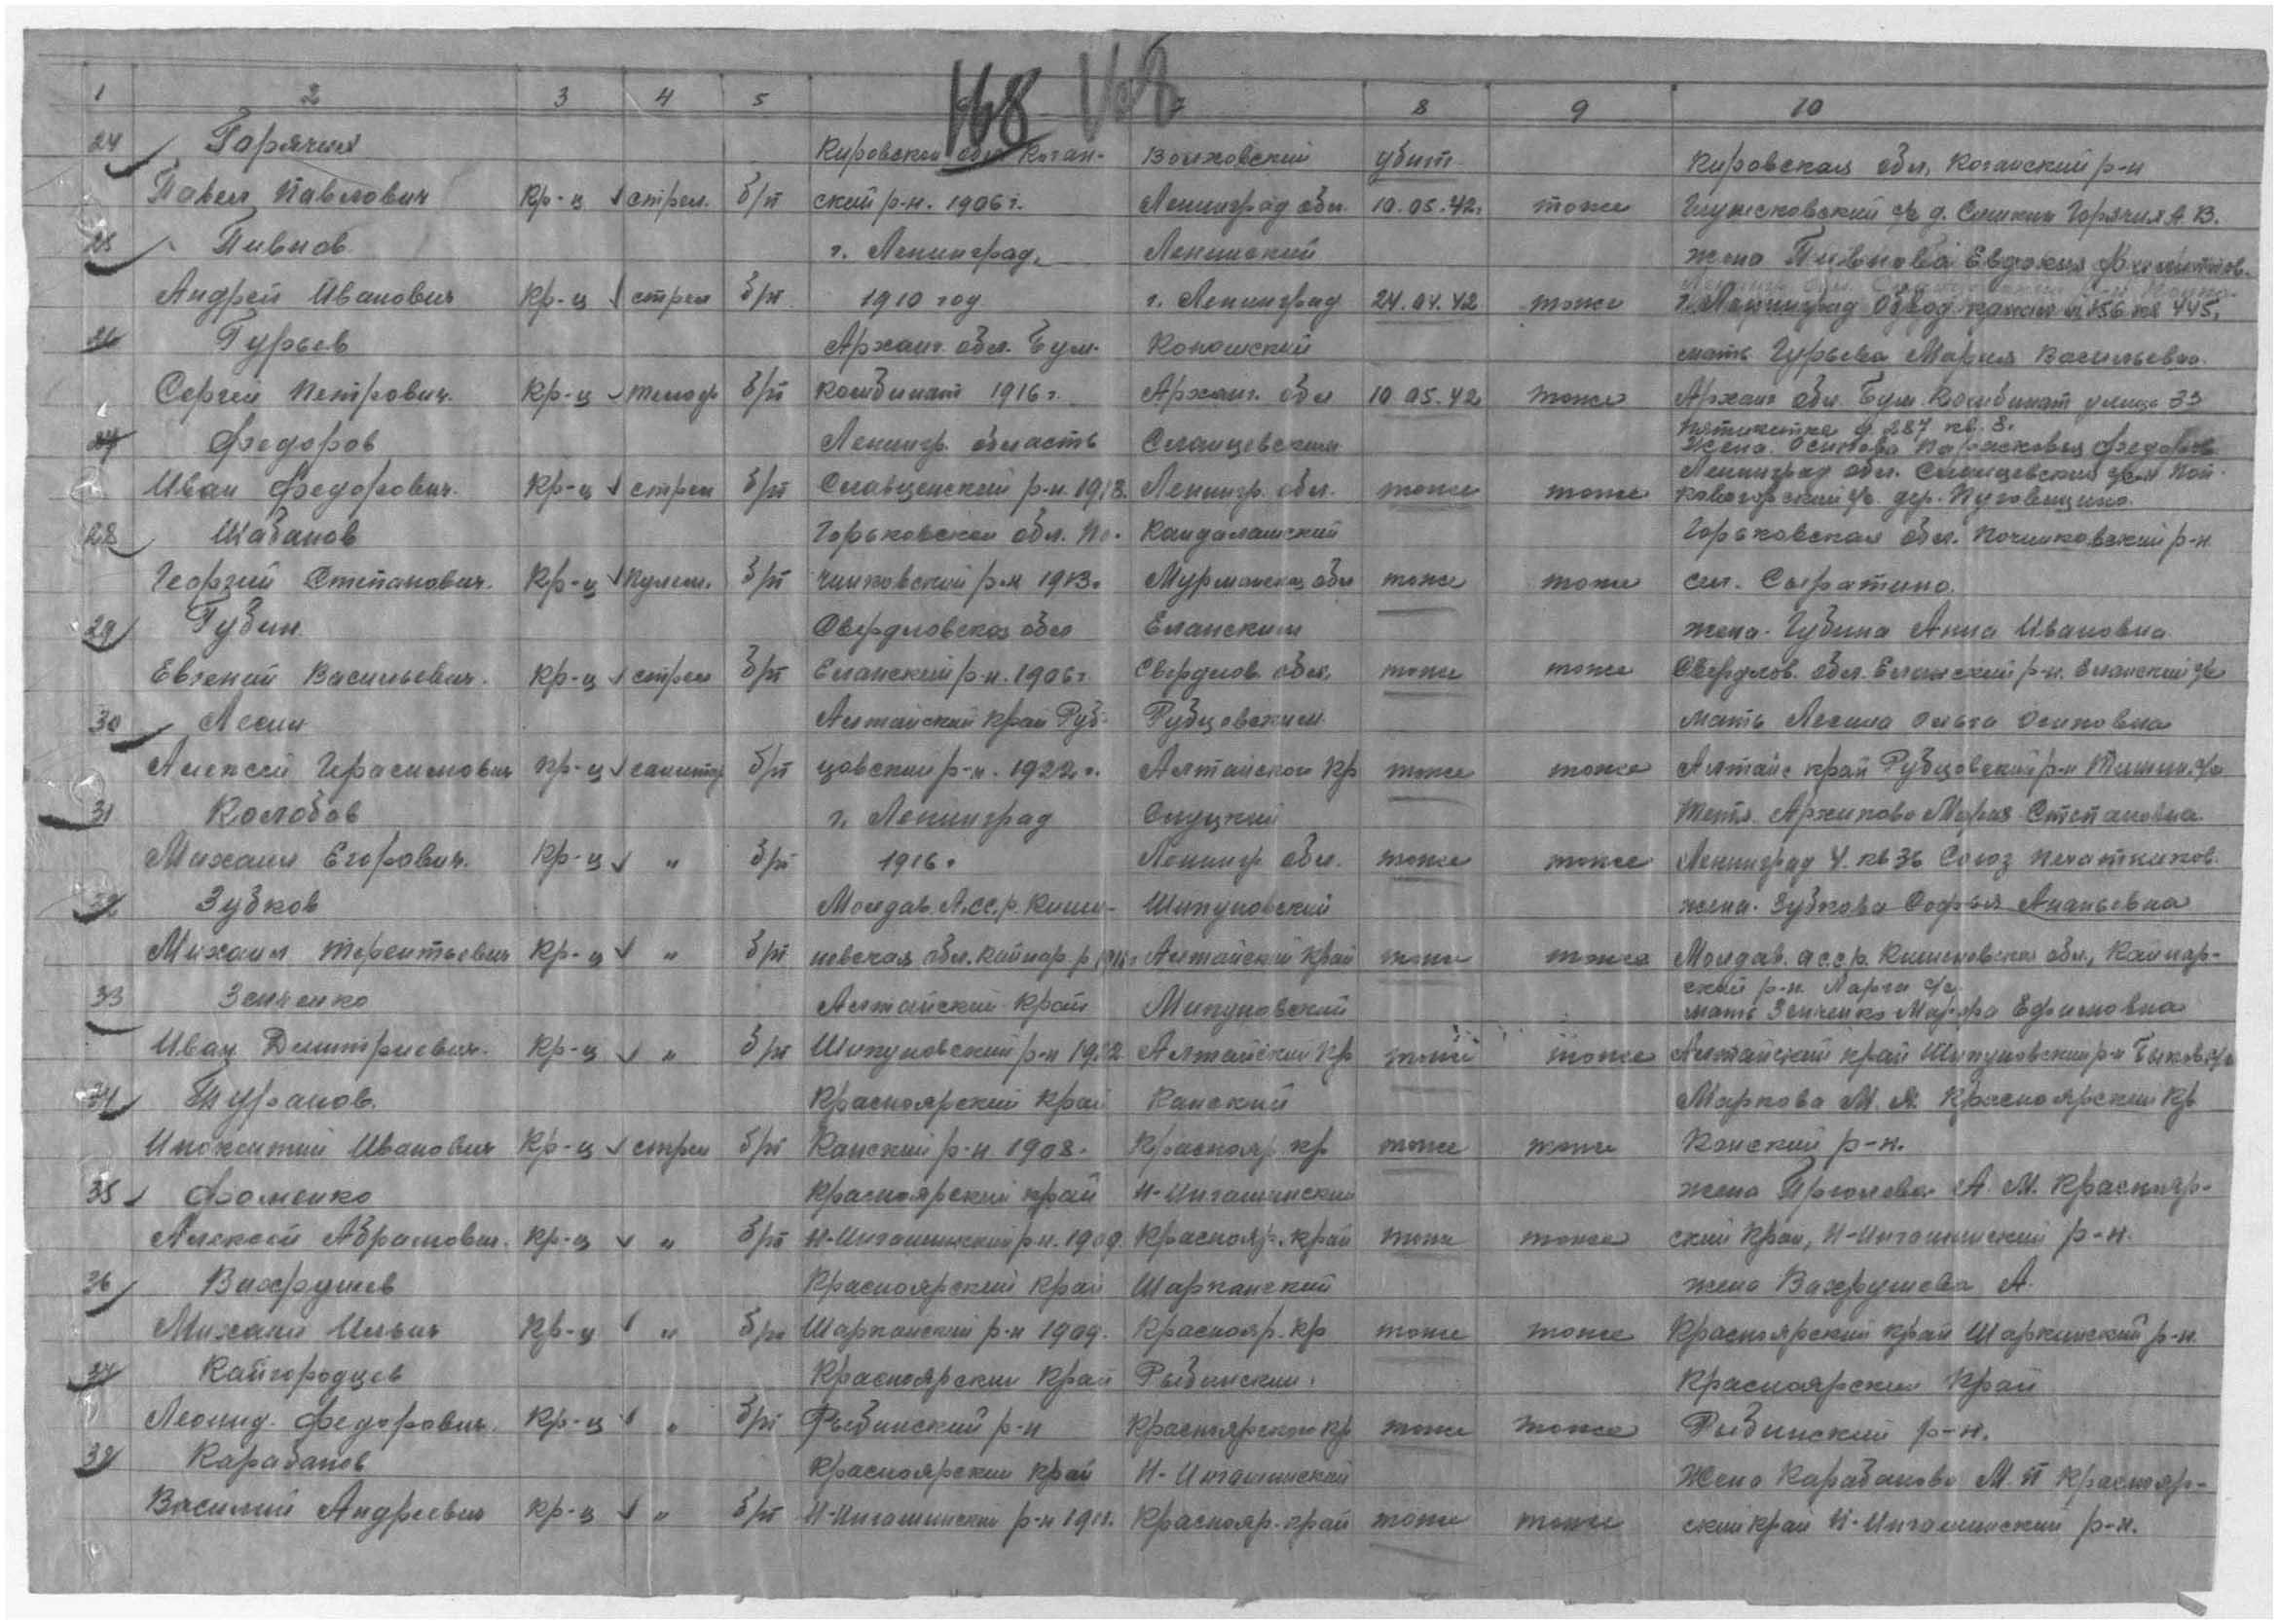 168 168
1 2 3 4 5 7 8 9 10
24 Горячия Кировской обл. Коган- Волховский убит Кировская обл. Коганский р-н
Павел Павлович Кр-ц стрел. б/п ский р-н. 1906 г. Ленинград обл. 10.05.42г. тоже с/с д. Горячия А. В.
25 Пивнов г. Ленинград. Ленинский жена Пивнова Евдокия
Андрей Иванович Кр-ц стрел б/п 1910 год г. Ленинград 24.04.42 тоже г. Ленинград Обвод канал д. 156 кв 445.
26 Гурьев Арханг. обл. Бум. Коношский мать Гурьева Мария Васильевна.
Сергей Петрович. Кр-ц телеф б/п комбинат 1916 г. Арханг. обл 10.05.42 тоже Арханг обл. Бум. Комбинат улица 33
Пятилетка д. 287 кв. 3.
27 Федоров Ленингр. область Сланцевский Жена Осипова Парасковья Федоров.
Иван Федорович. Кр-ц стрел б/п р-н. 1918. Ленингр. обл. тоже тоже Ленинград обл. Сланцевский
с/с. дер.
28 Шабанов Горьковской обл. По- Кандалашский Горьковская обл. Починковский р-н
Георгий Степанович. Кр-ц Пулем. б/п чинковский р-н 1913г. Мурманская обл тоже тоже сел. Сыратино.
29 Губин Свердловская обл Еланским жена. Губина Анна Ивановна
Евгений Васильевич. Кр-ц стрел б/п Еланский р-н. 1906 г. Свердлов. обл. тоже тоже Свердлов. обл. Еланский р-н. Еланский с/с
30 Лесин Алтайский край Руб- Рубцовским мать Лесина Ольга Осиповна
Алексей Герасимович Кр-ц санитар б/п цовский р-н. 1922 г. Алтайского Кр тоже тоже Алтайс край Рубцовский р-н с/с
31 Колобов г. Ленинград Слуцкий Тетя. Архипова Мария Степановна
Михаил Егорович. Кр-ц " б/п 1916 г. Ленингр обл. тоже тоже Ленинград 4. кв 36 Союз Печатников.
32 Зубков Молдав. А.сс.р. Киши- Шипуновский жена. Зубкова Софья Ананьевна
Михаил Терентьевич Кр-ц " б/п невская обл. Кайнар. р. Алтайский край тоже тоже Молдав. асср. Кишиневская обл., Кайнар-
ский р-н. Ларга с/с
33 Зенченко Алтайский край Шипуновский мать Зенченко Марфа Ефимовна
Иван Дмитриевич. Кр-ц " б/п Шипуновский р-н 1922 Алтайский Кр тоже тоже Алтайский край Шипуновский р-н Быков с/с
34 Туранов. Красноярский край Канский Маркова М. А. Красноярский Кр
Инокентий Иванович Кр-ц стрел б/п Канский р-н 1908. Краснояр кр тоже тоже Канский р-н.
35 Фоменко Красноярский край Н-Ингашинский жена А. М. Краснояр-
Алексей Абрамович. Кр-ц " б/п Н-Ингашинский р-н. 1909. Краснояр. край тоже тоже ский край, Н-Ингашинский р-н.
36 Вахрушев Красноярский край Шарканский жена Вахрушева А.
Михаил Ильич Кр-ц " б/п Шарканский р-н 1909. Краснояр. кр тоже тоже Красноярский край Шарканский р-н.
37 Кайгородцев Красноярский Край Рыбинский. Красноярский край
Леонид. Федорович. Кр-ц " б/п Рыбинский р-н Красноярского кр тоже тоже Рыбинский р-н.
38 Карабанов Красноярский край Н-Ингашинский Жена Карабанова М. П Краснояр-
Василий Андреевич Кр-ц " б/п Н-Ингашинский р-н 1911. Краснояр. край тоже тоже ский край Н-Ингашинский р-н.